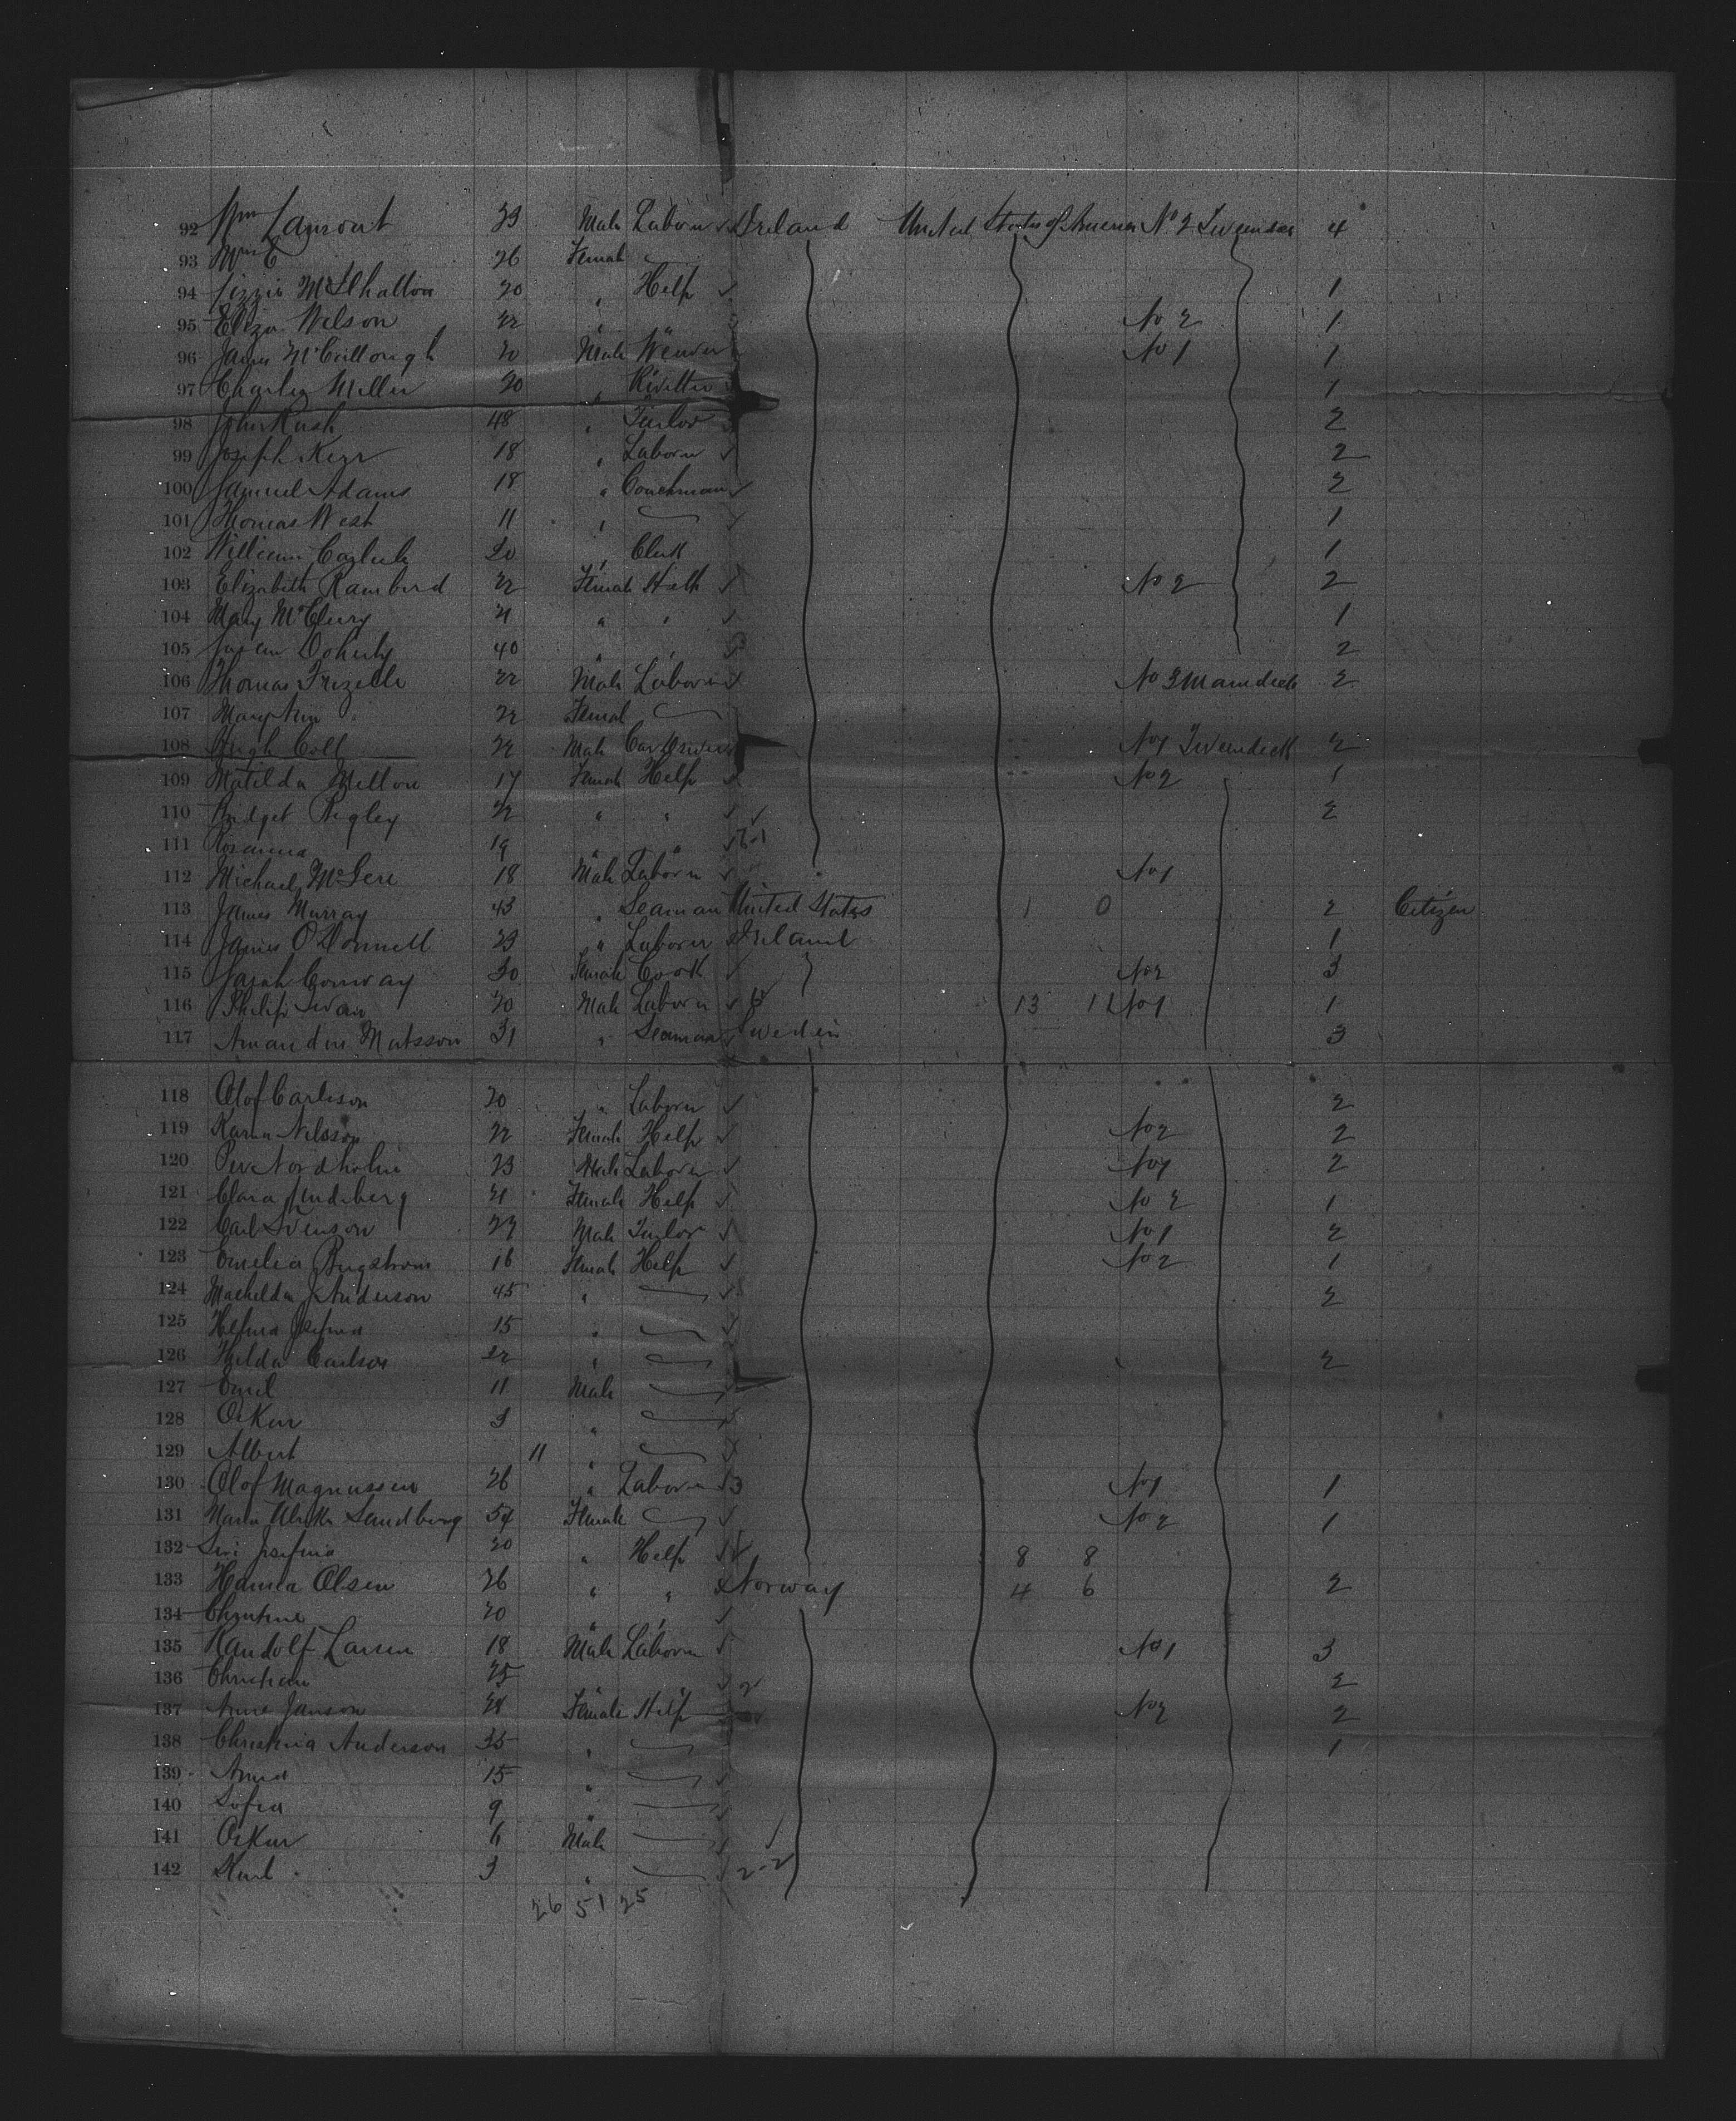 92 Wm Lamont 23 Male Laborer Ireland United States of America No 2 Tweendeck 4
93 Mrs E 26 Female
94 Lizzie McIlhatton 20 " Help 1
95 Eliza Wilson 22 " " No 2 1
96 James McCullough 20 Male Weaver No 1 1
97 Charley Miller 20 " Rivetter 1
98 John Rush 48 " Tailor 2
99 Joseph Kerr 18 " Laborer 2
100 Samuel Adams 18 " Coachman 2
101 Thomas West 11 " 1
102 William 20 " Clerk 1
103 Elizabeth 22 Female Help No 2 2
104 Mary McClury 21 " " 1
105 Doherty 40 " " 2
106 Thomas Frizelle 22 Male Laborer No 3 Maindeck 2
107 Mary Ann 22 Female
108 Hugh Coll 22 Male No 1 Tweendeck 2
109 Matilda Mellon 17 Female Help No 2 1
110 Bridget 22 " " 2
111 Rosanna 19 " "
112 Michael 18 Male Laborer No 1
113 James Murray 43 " Seaman United States 1 0 2 Citizen
114 James O'Donnell 23 " Laborer Ireland 1
115 Sarah Conway 30 Female Cook No 2 3
116 Philip Swan 20 Male Laborer 13 11 No 1 1
117 Matsson 31 " Seaman Sweden 3
118 Olof Carlsson 20 " Laborer 2
119 Karna Nilsson 22 Female Help No 2 2
120 Per Nordholm 23 Male Laborer No 1 2
121 Clara Lindeberg 21 Female Help No 2 1
122 Carl Svenson 27 Male Tailor No 1 2
123 Emelia 16 Female Help No 2 1
124 J Anderson 45 " 2
125 Josefina 15 "
126 Hilda Carlson 22 " 2
127 Emil 11 Male
128 Oskar 3 "
129 Albert 11 "
130 Olof Magnussen 26 " Laborer 3 No 1 1
131 Maria Ulrika Sandberg 54 Female No 2 1
132 Siri Josefina 20 " Help 8 8
133 Hanna Olsen 26 " " Norway 4 6 2
134 Christine 20 " "
135 Randolf Larsen 18 Male Laborer No 1 3
136 Christian 25 " " 2 2
137 Anne Janson 21 Female Help No 2 2
138 Christina Anderson 35 " 1
139 Anna 15 "
140 Sofia 9 "
141 Oskar 6 Male
142 3 " 2-2
26 51 25